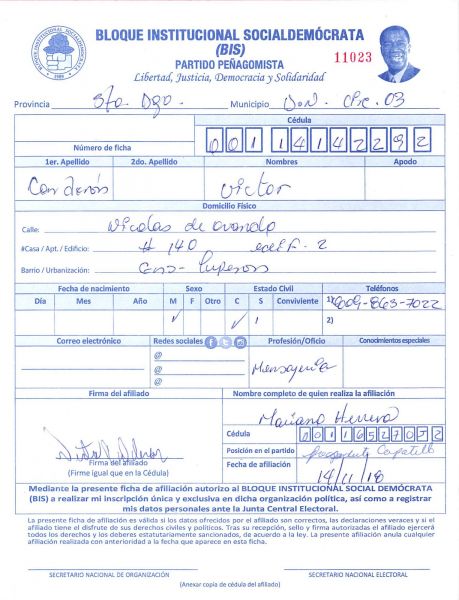 BLOQUE INSTITUCIONAL SOCIALDEMÓCRATA
(BIS)
PARTIDO PEÑAGOMISTA
11023
Libertad, Justicia, Democracia y Solidaridad
Provincia Sto. Dgo. Municipio Don. Cire. 03
Cédula
Número de ficha 001 1414229 2
1er. Apellido 2do. Apellido Nombres Apodo
Victor
Domicilio Físico
Calle: Nicolas de ovando
#Casa / Apt. / Edificio: # 140 2
Barrio / Urbanización: Cris-
Fecha de nacimiento Sexo Estado Civil Teléfonos
Día Mes Año M F Otro C S Conviviente 1) 809-863-7022
2)
Correo electrónico Redes sociales Profesión/Oficio Conocimientos especiales
@ Mensajería
@
@
Firma del afiliado Nombre completo de quien realiza la afiliación
Mariano Herrera
Cédula 0011652707 2
Posición en el partido
Firma del afiliado
(Firme igual que en la Cédula)
Fecha de afiliación 14/11/18
Mediante la presente ficha de afiliación autorizo al BLOQUE INSTITUCIONAL SOCIAL DEMÓCRATA
(BIS) a realizar mi inscripción única y exclusiva en dicha organización política, así como a registrar
mis datos personales ante la Junta Central Electoral.
La presente ficha de afiliación es válida si los datos ofrecidos por el afiliado son correctos, las declaraciones veraces y si el
afiliado tiene el disfrute de sus derechos civiles y políticos. Tras su recepción, sello y firma autorizadas el afiliado ejercerá
todos los derechos y los deberes estatutariamente sancionados, de acuerdo a la ley. La presente afiliación anula cualquier
afiliación realizada con anterioridad a la fecha que aparece en esta ficha.
SECRETARIO NACIONAL DE ORGANIZACIÓN SECRETARIO NACIONAL ELECTORAL
(Anexar copia de cédula del afiliado)